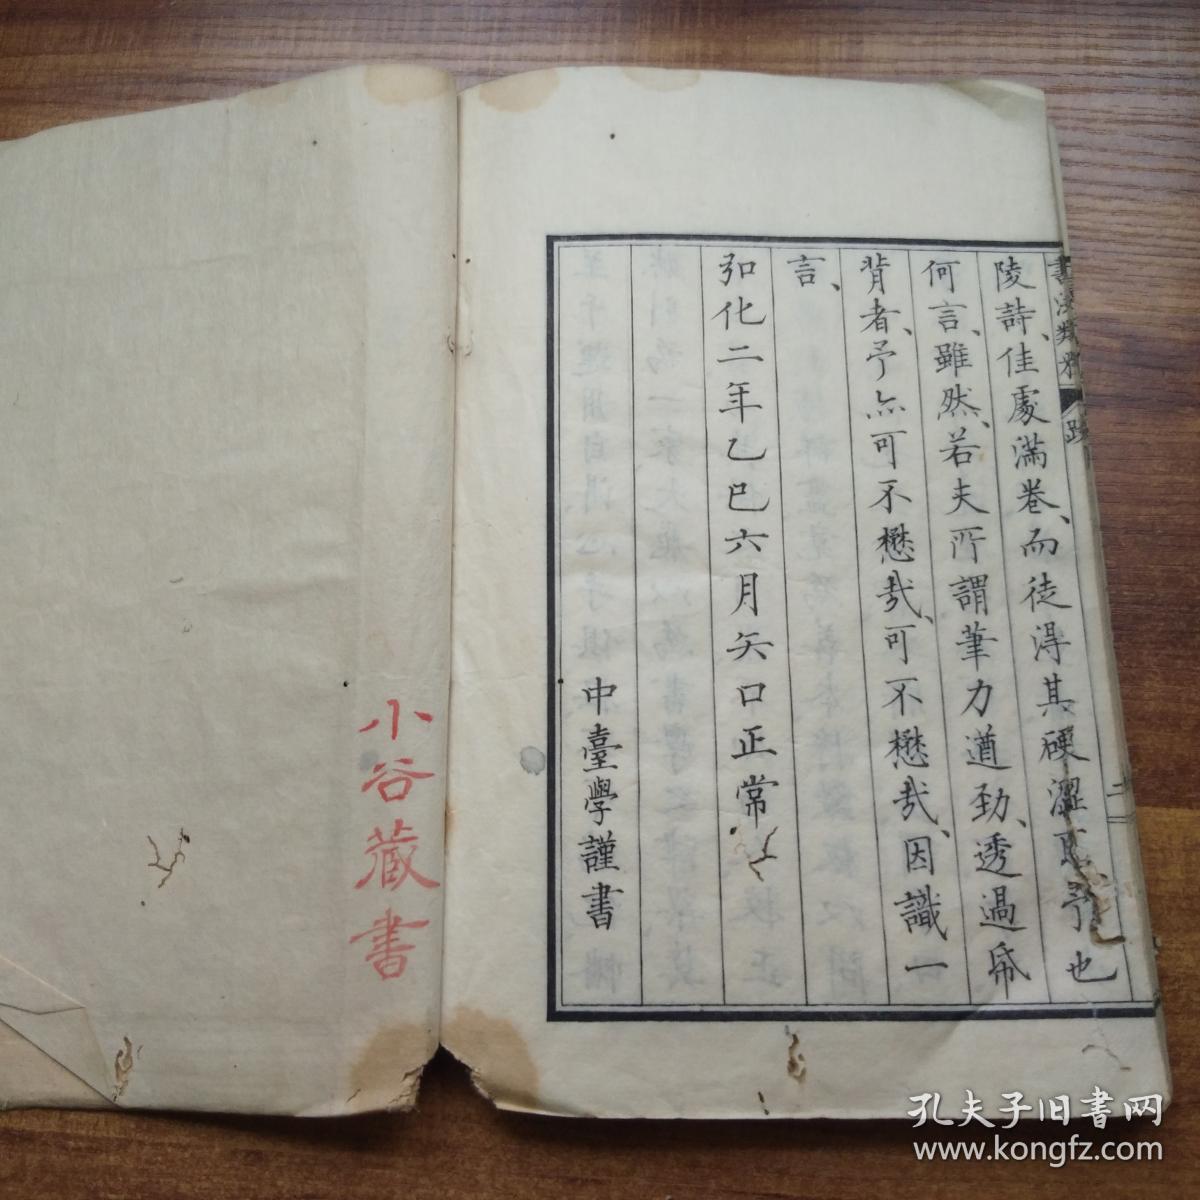 書法類釋
跋
二
陵詩、佳處滿卷、而徒得其硬澀
予也
何言、雖然、若夫所謂筆力遒勁、透過帋
背者、予亦可不懋哉、可不懋哉、因識一
言、
弘化二年乙巳六月矢口正常
中臺學謹書
小谷蔵書
孔夫子旧书网
www.kongfz.com